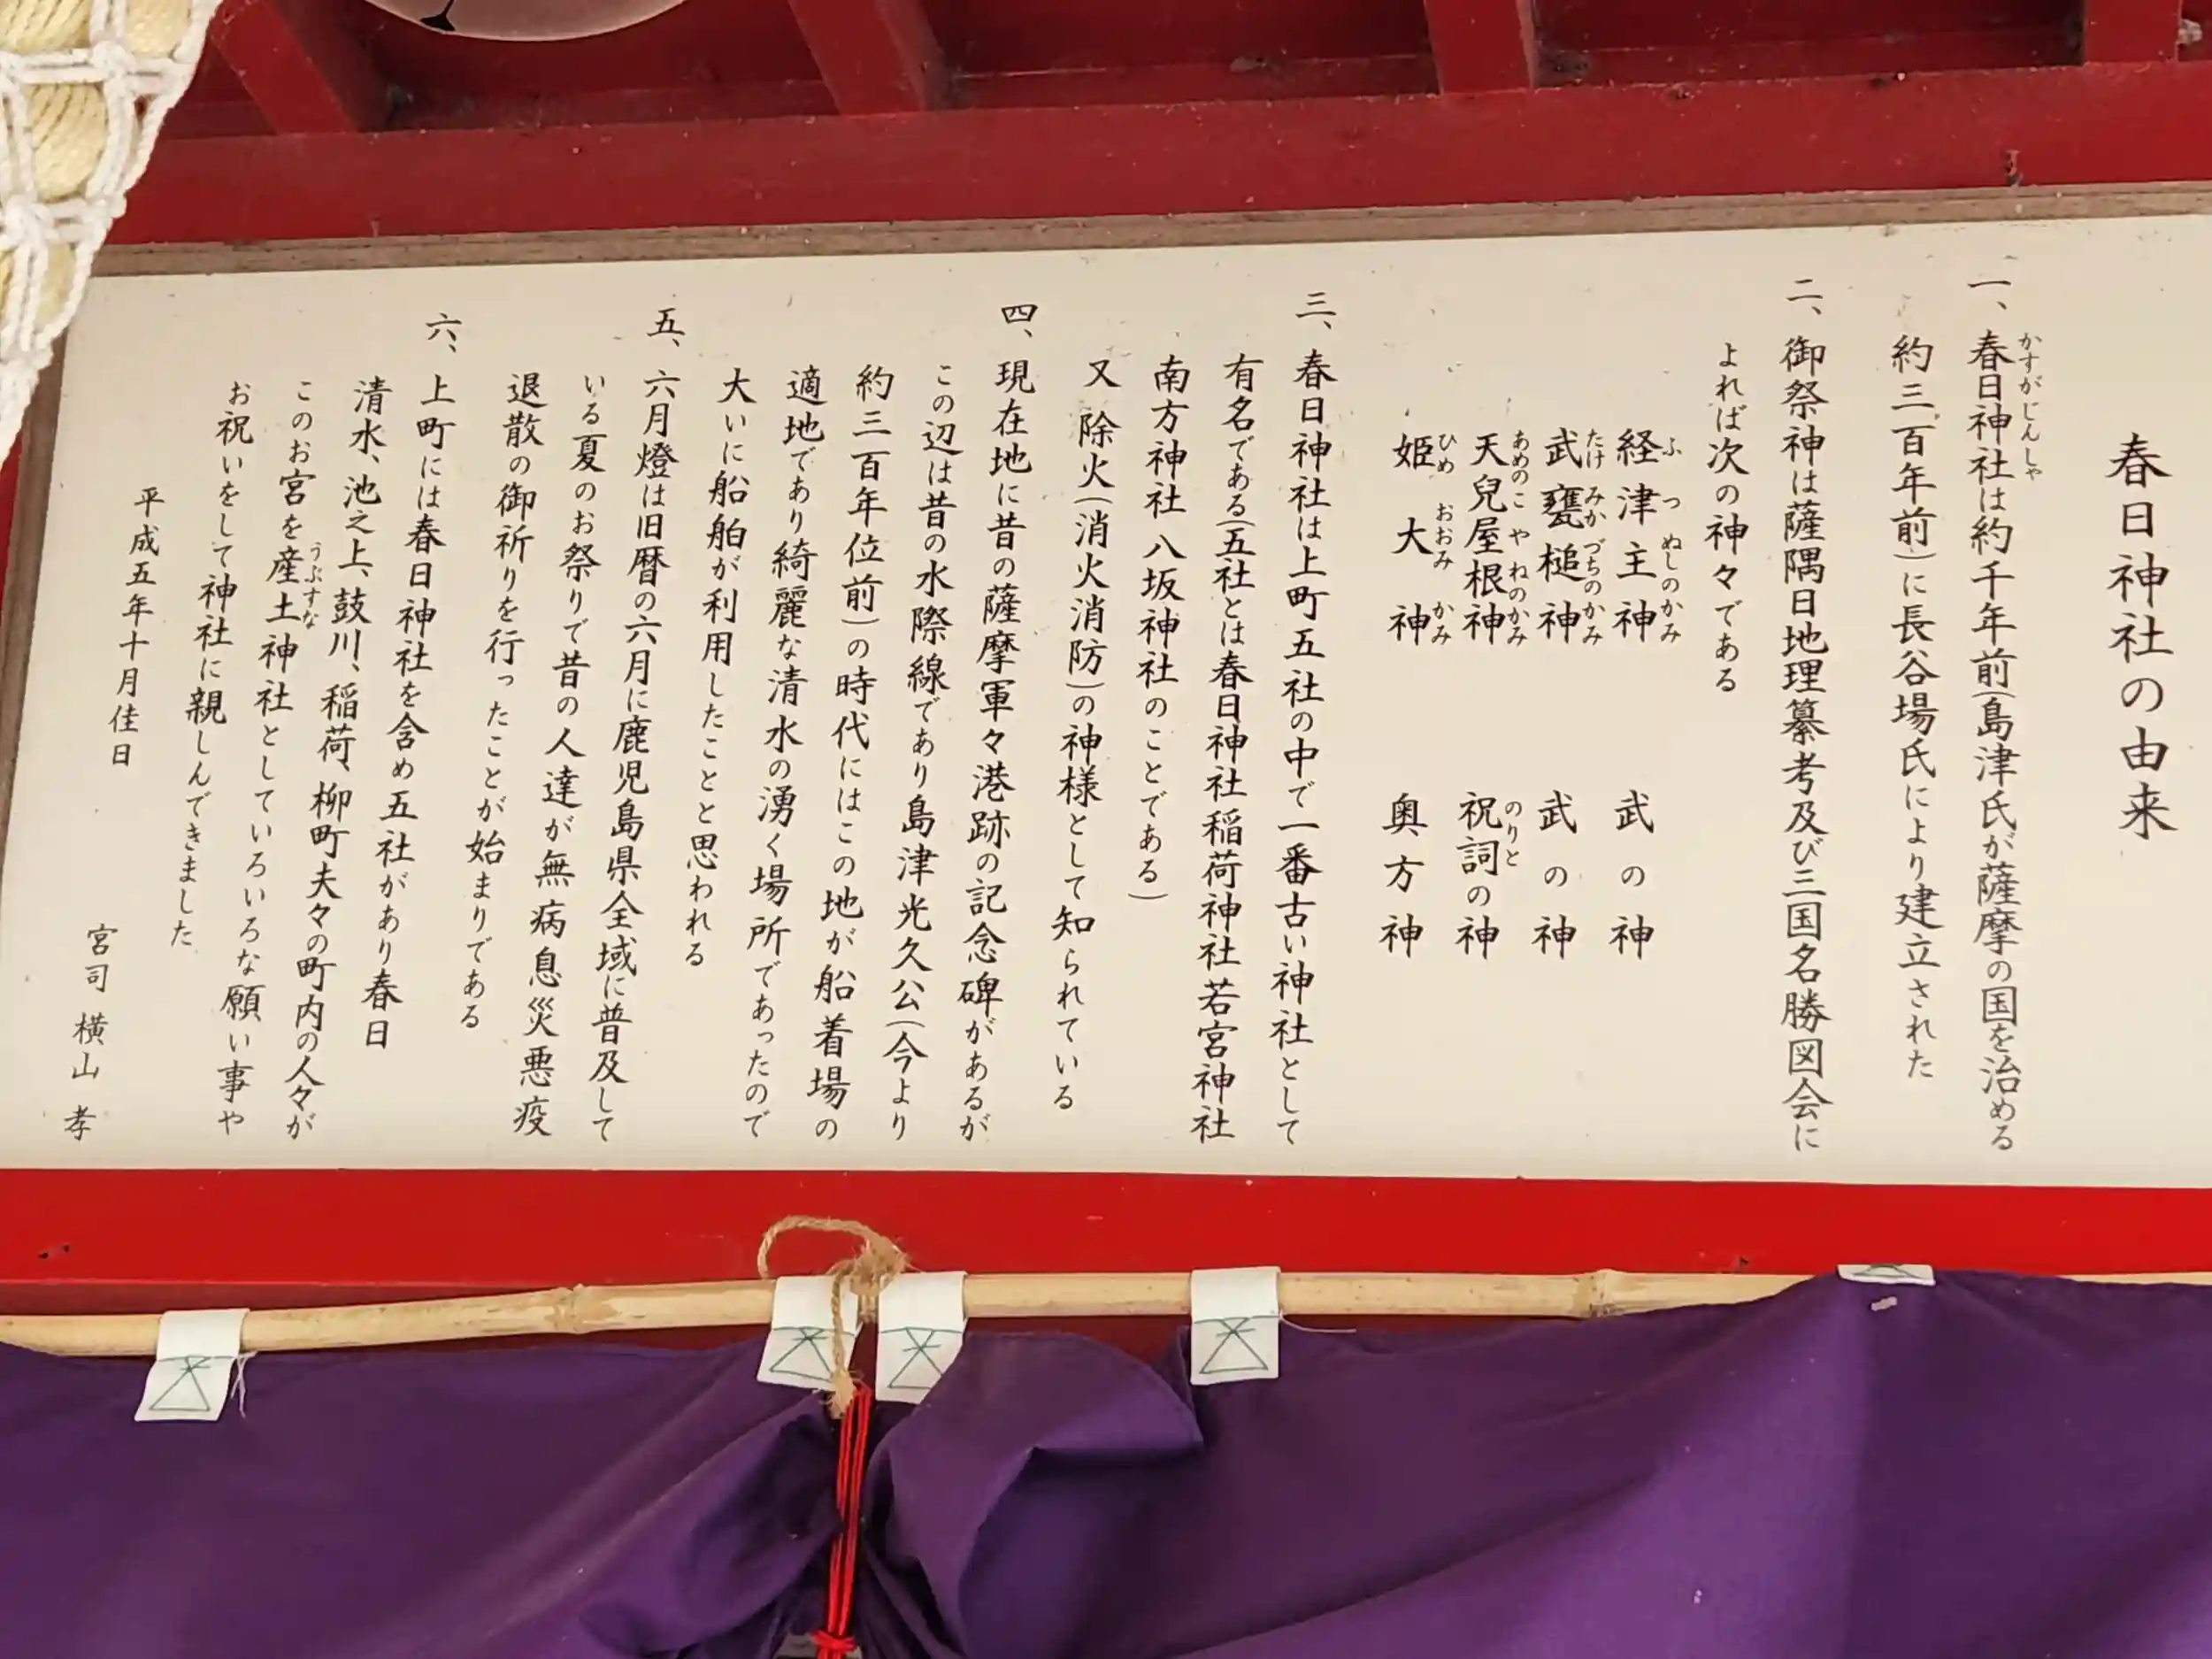 春日神社の由来
一、春日神社は約千年前(島津氏が薩摩の国を治める
かすがじんしゃ
約三百年前)に長谷場氏により建立された
二、御祭神は薩隅日地理纂考及び三国名勝図会に
よれば次の神々である
経津主神 武の神
ふつぬしのかみ
武甕槌神 武の神
たけみかづちのかみ
天兒屋根神 祝詞の神
あめのこやねのかみ のりと
姫大神 奥方神
ひめおおみかみ
三、春日神社は上町五社の中で一番古い神社として
有名である(五社とは春日神社稲荷神社若宮神社
南方神社八坂神社のことである)
又除火(消火消防)の神様として知られている
四、現在地に昔の薩摩軍々港跡の記念碑があるが
この辺は昔の水際線であり島津光久公(今より
約三百年位前)の時代にはこの地が船着場の
適地であり綺麗な清水の湧く場所であったので
大いに船舶が利用したことと思われる
五、六月燈は旧暦の六月に鹿児島県全域に普及して
いる夏のお祭りで昔の人達が無病息災悪疫
退散の御祈りを行ったことが始まりである
六、上町には春日神社を含め五社があり春日
清水、池之上、鼓川、稲荷、柳町夫々の町内の人々が
このお宮を産土神社としていろいろな願い事や
うぶすな
お祝いをして神社に親しんできました
平成五年十月佳日
宮司 横山 孝